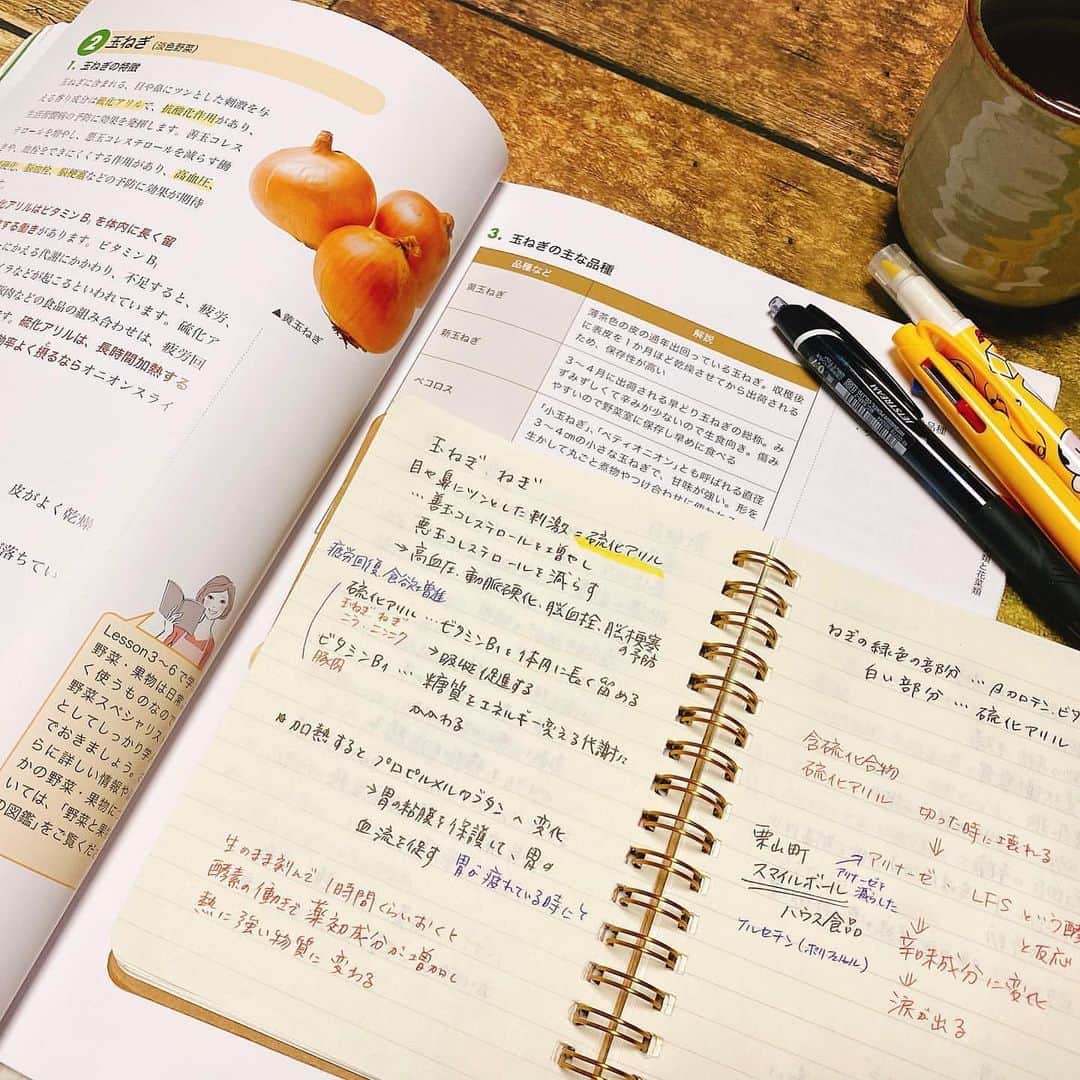 2 玉ねぎ (淡色野菜)
1. 玉ねぎの特徴
玉ねぎに含まれる、目や鼻にツンとした刺激を与
える香り成分は硫化アリルで、抗酸化作用があり、
生活習慣病の予防に効果を発揮します。善玉コレス
テロールを増やし、悪玉コレステロールを減らす働
きや、血栓をできにくくする作用があり、高血圧、
脳血栓、脳梗塞などの予防に効果が期待
化アリルはビタミンB₁を体内に長く留
する働きがあります。ビタミンB₁
にかえる代謝にかかわり、不足すると、疲労、
イラなどが起こるといわれています。硫化ア
豚肉などの食品の組み合わせは、疲労回
す。硫化アリルは、長時間加熱する
効率よく摂るならオニオンスライ
▲黄玉ねぎ
皮がよく乾燥
落ちてい
Lesson3～6で学
野菜・果物は日常
く使うものなので
野菜スペシャリス
としてしっかり学
でおきましょう。
らに詳しい情報や
かの野菜・果物に
いては、「野菜と果
の図鑑」をご覧くだ
3. 玉ねぎの主な品種
品種など
解説
黄玉ねぎ
薄茶色の皮の通年出回っている玉ねぎ。収穫後
に表皮を1か月ほど乾燥させてから出荷される
ため、保存性が高い
新玉ねぎ
3～4月に出荷される早どり玉ねぎの総称。み
ずみずしくて辛みが少ないので生食向き。傷み
やすいので野菜室に保存し早めに食べる
ペコロス
「小玉ねぎ」、「ペティオニオン」とも呼ばれる直径
3～4cmの小さな玉ねぎで、甘味が強い。形を
生かして丸ごと煮物やつけ合わせに使われる
類と花菜類
玉ねぎ、ねぎ
目や鼻にツンとした刺激=硫化アリル
…善玉コレステロールを増やし
悪玉コレステロールを減らす
→高血圧、動脈硬化、脳血栓、脳梗塞
の予防
疲労回復、食欲増進
硫化アリル…ビタミンB₁を体内に長く留める
玉ねぎ ねぎ
ニラ・ニンニク
→吸収促進する
ビタミンB₁…糖質をエネルギー変える代謝に
豚肉
かかわる
加熱するとプロピルメルカプタンへ変化
→胃の粘膜を保護して、胃の
血流を促す 胃が疲れている時にも
生のまま刻んで1時間くらいおくと
酵素の働きで薬効成分が増加し
熱に強い物質に変わる
ねぎの緑色の部分…βカロテン、ビタ
白い部分…硫化アリル
含硫化合物
硫化アリル 切った時に壊れる
アリナーゼ、LFSという酵
と反応
栗山町
スマイルボール
アリナーゼを
減らした
ハウス食品
ケルセチン(ポリフェノール)
辛味成分に変化
涙が出る